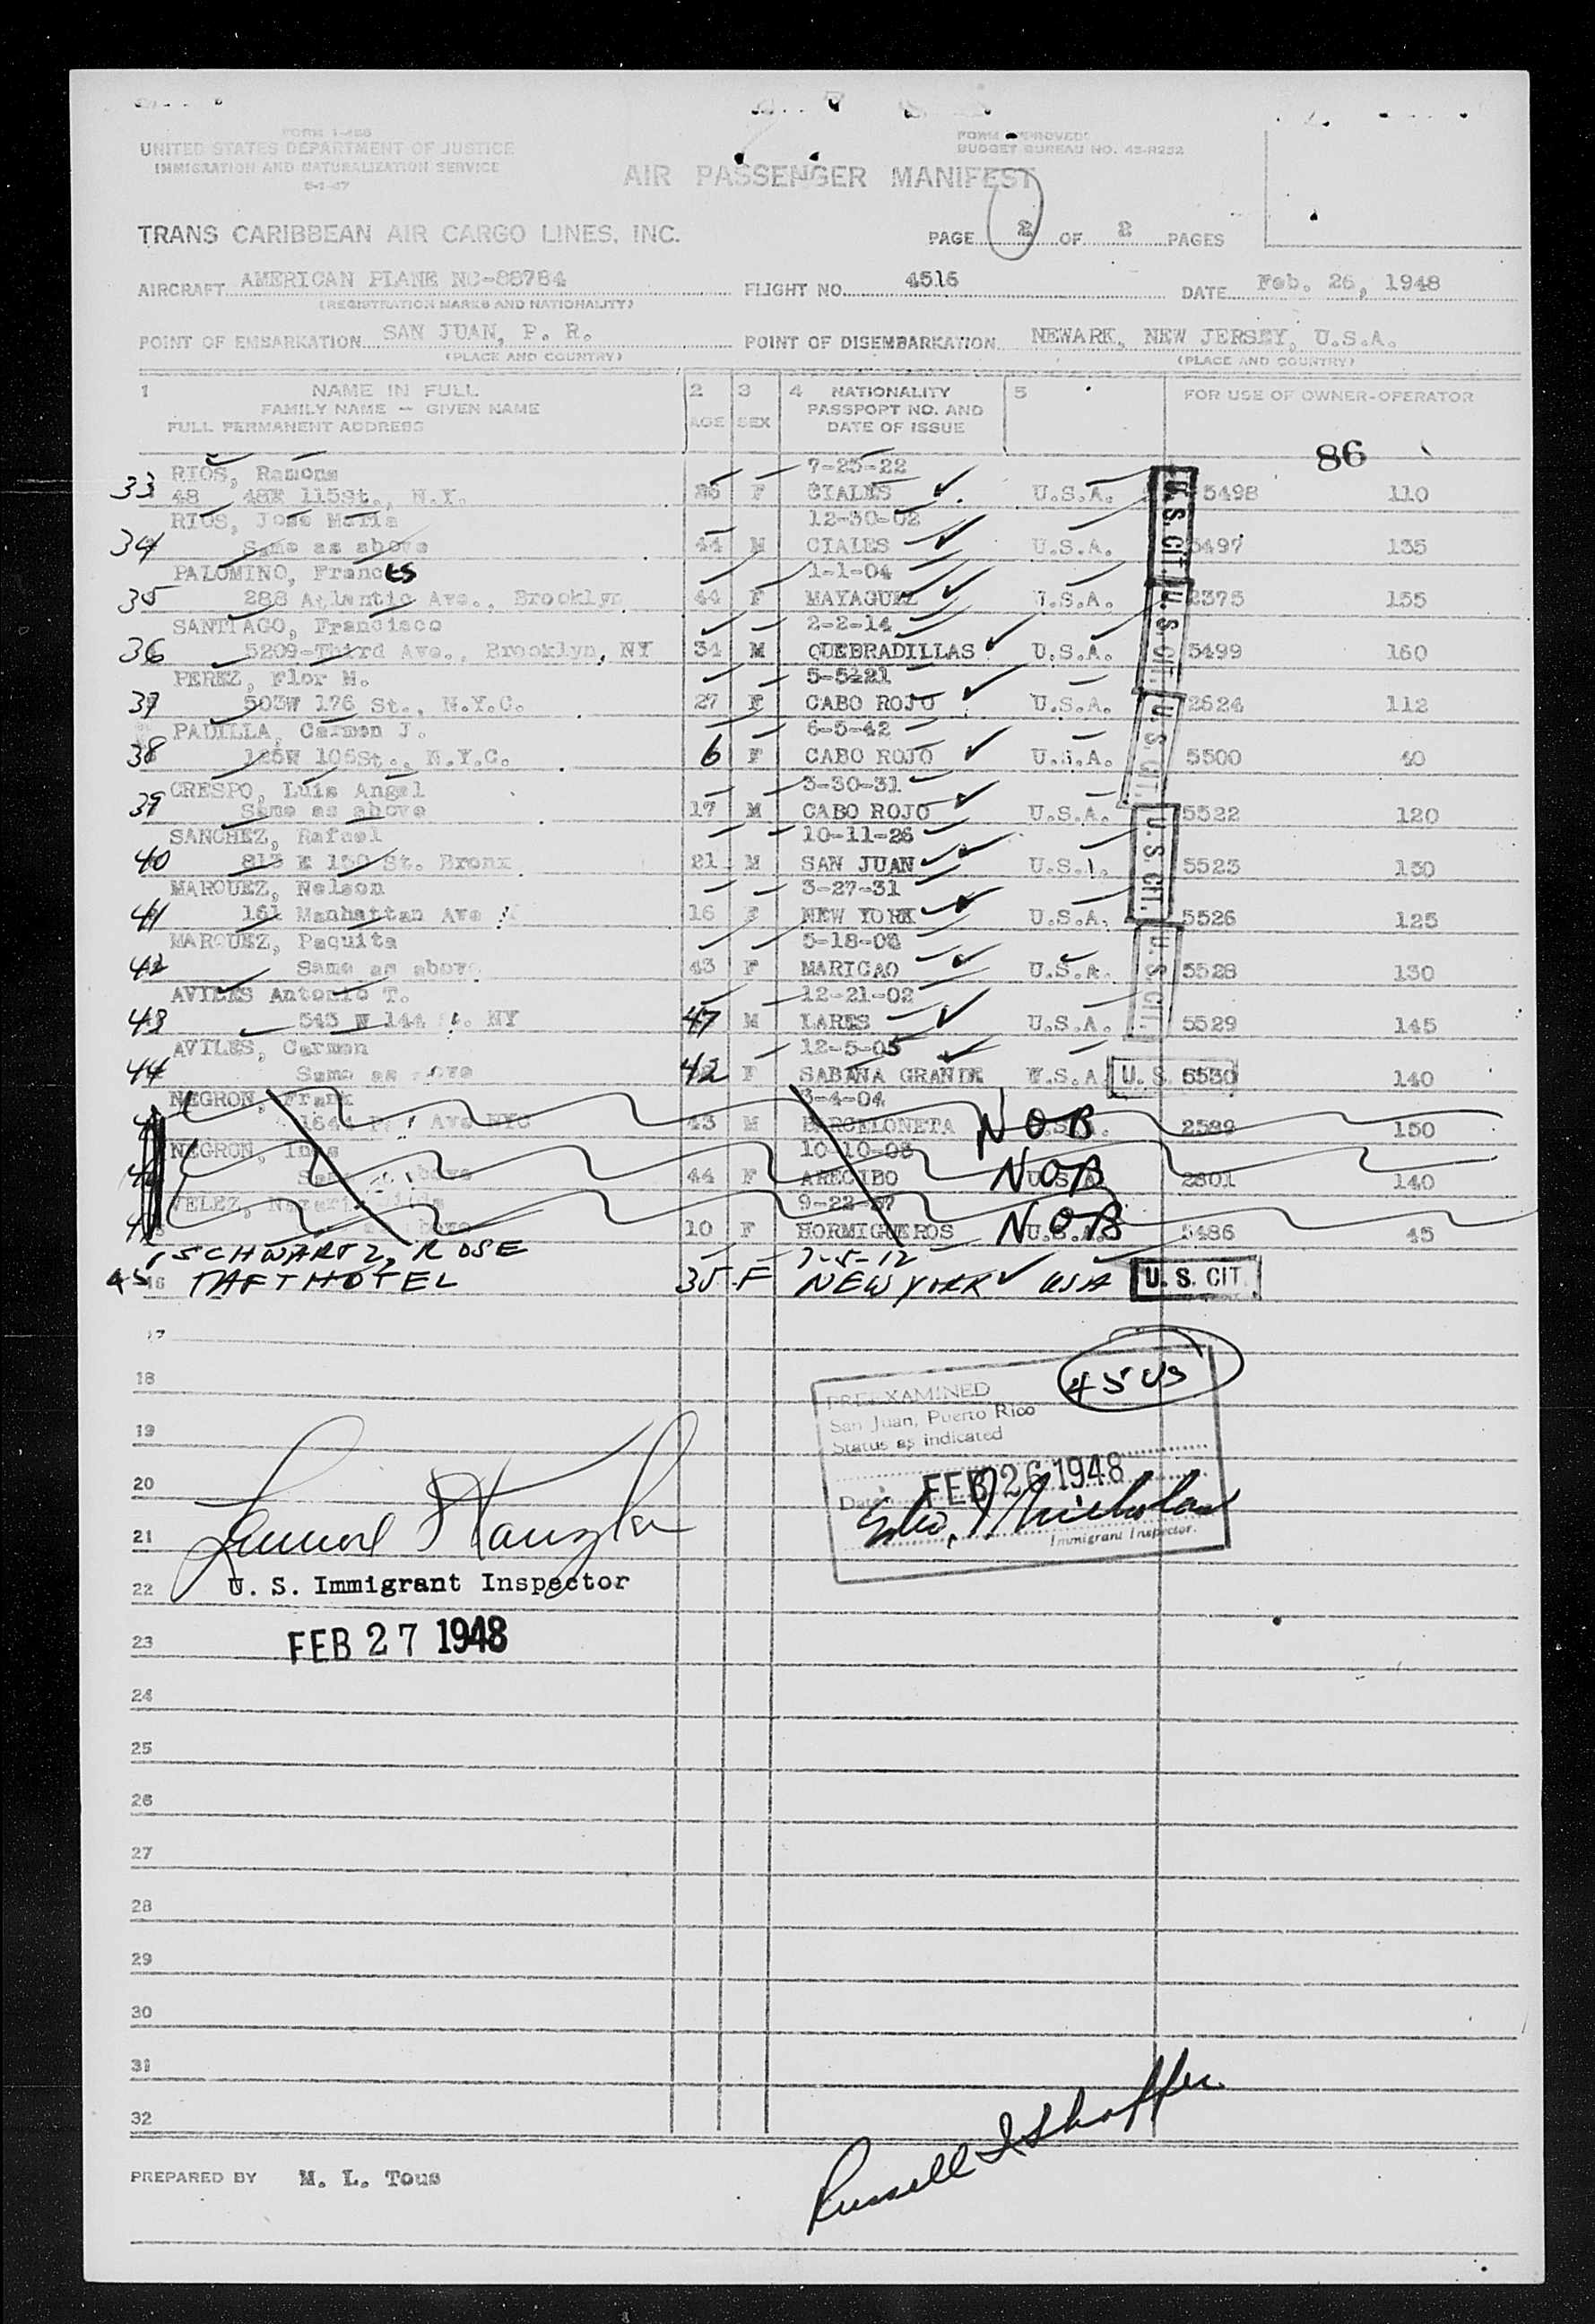 FORM I-466
UNITED STATES DEPARTMENT OF JUSTICE
IMMIGRATION AND NATURALIZATION SERVICE
FORM APPROVED:
BUDGET BUREAU NO. 43-R252
AIR PASSENGER MANIFEST
TRANS CARIBBEAN AIR CARGO LINES, INC.
PAGE 2 OF 2 PAGES
AIRCRAFT AMERICAN PLANE NC-88784 FLIGHT NO. 4516 DATE Feb. 26, 1948
(REGISTRATION MARKS AND NATIONALITY)
POINT OF EMBARKATION SAN JUAN, P. R. POINT OF DISEMBARKATION NEWARK, NEW JERSEY, U.S.A.
(PLACE AND COUNTRY) (PLACE AND COUNTRY)
1 NAME IN FULL 2 3 4 NATIONALITY 5 FOR USE OF OWNER-OPERATOR
FAMILY NAME — GIVEN NAME AGE SEX PASSPORT NO. AND
FULL PERMANENT ADDRESS DATE OF ISSUE
86
RIOS, Ramona 7-25-22
33 48 48E 115St., N.Y. F CIALES U.S.A. 5498 110
RIOS, Jose Maria 12-30-02
34 Same as above 44 M CIALES U.S.A. 5497 135
PALOMINO, Frances 1-1-04
35 288 Atlantic Ave., Brooklyn 44 F MAYAGUEZ U.S.A. 2375 155
SANTIAGO, Francisco 2-2-14
36 5209-Third Ave., Brooklyn, NY 34 M QUEBRADILLAS U.S.A. 5499 160
PEREZ, Flor M. 5-5-21
37 503W 176 St., N.Y.C. 27 F CABO ROJO U.S.A. 2624 112
PADILLA, Carmen J. 6-5-42
38 125W 105St., N.Y.C. 6 F CABO ROJO U.S.A. 5500 40
CRESPO, Luis Angel 3-30-31
39 Same as above 17 M CABO ROJO U.S.A. 5522 120
SANCHEZ, Rafael 10-11-26
40 813 E 150 St. Bronx 21 M SAN JUAN U.S.A. 5523 130
MARQUEZ, Nelson 3-27-31
41 161 Manhattan Ave 16 NEW YORK U.S.A. 5526 125
MARQUEZ, Paquita 5-18-0
42 Same as above 43 F MARICAO U.S.A. 5528 130
AVILES Antonio T. 12-21-02
43 543 W 144 St. NY 47 M LARES U.S.A. 5529 145
AVILES, Carmen 12-5-05
44 Same as above 42 F SABANA GRANDE U.S.A. 5530 140
NEGRON, Frank 3-4-04
1644 Ave NYC 43 M BARCELONETA NOB 2589 150
NEGRON, 10-10-03
Same as above 44 F ARECIBO U.S.A. NOB 2301 140
VELEZ, 9-22-37
above 10 F HORMIGUEROS U.S.A. NOB 5486 45
SCHWARTZ, ROSE 7-5-12
45 16 TAFT HOTEL 35 F NEW YORK USA
U.S. CIT.
U.S. CIT.
U.S. CIT.
U.S. CIT.
U.S. CIT.
U. S.
U. S. CIT.
17
18
19
20
21
22
23
24
25
26
27
28
29
30
31
32
45 US
PREEXAMINED
San Juan, Puerto Rico
Status as indicated
Date FEB 26 1948
Immigrant Inspector.
U. S. Immigrant Inspector
FEB 27 1948
PREPARED BY M. L. Tous
Russell I Shaffer